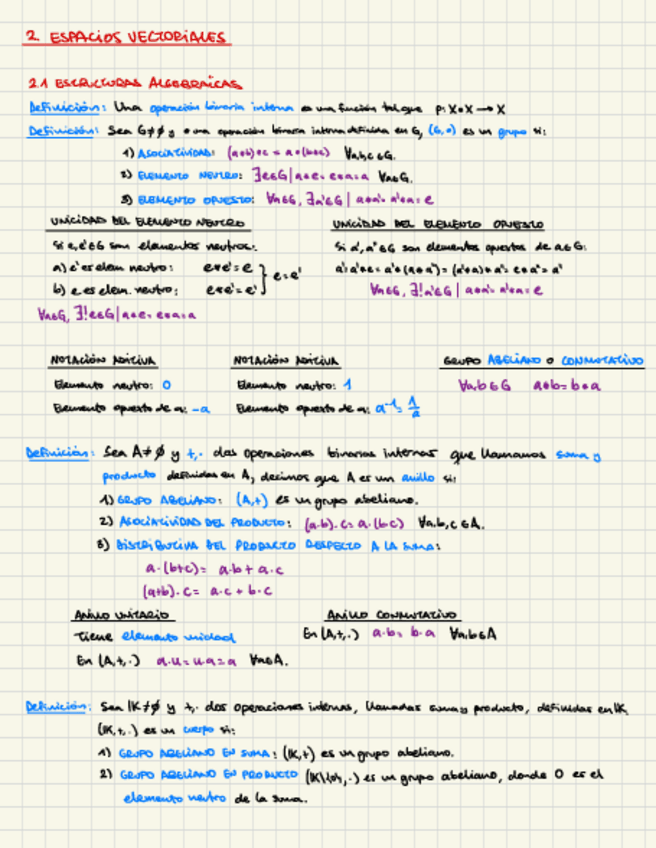 2. ESPACIOS VECTORIALES
2.1 ESTRUCTURAS ALGEBRAICAS
Definición: Una operación binaria interna es una función tal que p: X×X → X
Definición: Sea G≠∅ y • una operación binaria interna definida en G, (G,•) es un grupo si:
1) ASOCIATIVIDAD: (a•b)•c = a•(b•c) ∀a,b,c∈G.
2) ELEMENTO NEUTRO: ∃e∈G | a•e = e•a = a ∀a∈G.
3) ELEMENTO OPUESTO: ∀a∈G, ∃a'∈G | a•a' = a'•a = e
UNICIDAD DEL ELEMENTO NEUTRO
Si e,e'∈G son elementos neutros:
a) e' es elem neutro: e•e' = e
b) e es elem. neutro: e•e' = e' } e = e'
∀a∈G, ∃!e∈G | a•e = e•a = a
UNICIDAD DEL ELEMENTO OPUESTO
Si a', a''∈G son elementos opuestos de a∈G:
a' = a'•e = a'•(a•a'') = (a'•a)•a'' = e•a'' = a''
∀a∈G, ∃!a'∈G | a•a' = a'•a = e
NOTACIÓN ADITIVA
Elemento neutro: 0
Elemento opuesto de a: -a
NOTACIÓN ADITIVA
Elemento neutro: 1
Elemento opuesto de a: a⁻¹ = 1/a
GRUPO ABELIANO O CONMUTATIVO
∀a,b∈G a•b = b•a
Definición: Sea A≠∅ y +,· dos operaciones binarias internas que llamamos suma y
producto definidas en A, decimos que A es un anillo si:
1) GRUPO ABELIANO: (A,+) es un grupo abeliano.
2) ASOCIATIVIDAD DEL PRODUCTO: (a·b)·c = a·(b·c) ∀a,b,c∈A.
3) DISTRIBUTIVA DEL PRODUCTO RESPECTO A LA SUMA:
a·(b+c) = a·b + a·c
(a+b)·c = a·c + b·c
ANILLO UNITARIO
Tiene elemento unidad
En (A,+,·) a·u = u·a = a ∀a∈A.
ANILLO CONMUTATIVO
En (A,+,·) a·b = b·a ∀a,b∈A
Definición: Sea IK≠∅ y +,· dos operaciones internas, llamadas suma y producto, definidas en IK,
(IK,+,·) es un cuerpo si:
1) GRUPO ABELIANO EN SUMA: (IK,+) es un grupo abeliano.
2) GRUPO ABELIANO EN PRODUCTO (IK\{0},·) es un grupo abeliano, donde 0 es el
elemento neutro de la suma.